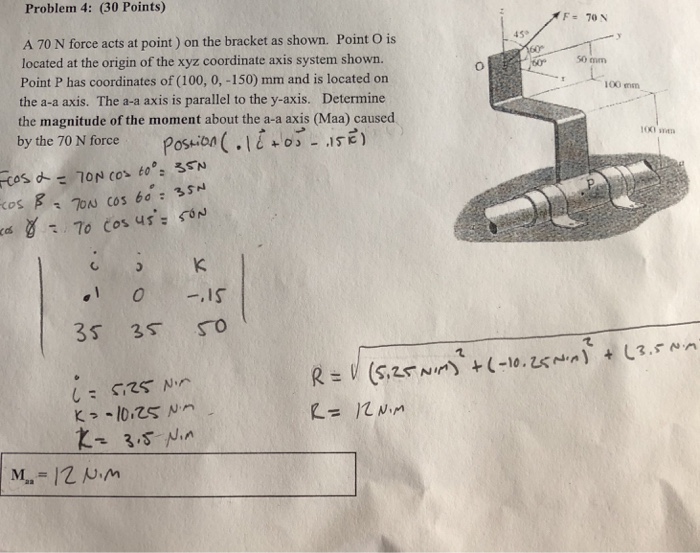 Problem 4: (30 Points)
A 70 N force acts at point ) on the bracket as shown. Point O is
located at the origin of the xyz coordinate axis system shown.
Point P has coordinates of (100, 0, -150) mm and is located on
the a-a axis. The a-a axis is parallel to the y-axis. Determine
the magnitude of the moment about the a-a axis (Maa) caused
by the 70 N force
Position (.1i + 0j - .15k)
Fcos α = 70N cos 60° = 35N
cos β = 70N cos 60° = 35N
cos γ = 70 cos 45° = 50N
i j K
.1 0 -.15
35 35 50
i = 5.25 N·m
K = -10.25 N·m
K = 3.5 N·m
R = √(5.25 N·m)² + (-10.25 N·m)² + (3.5 N·m
R = 12 N·m
Maa = 12 N·m
z
F = 70 N
45°
y
60°
O
60°
50 mm
x
100 mm
100 mm
P